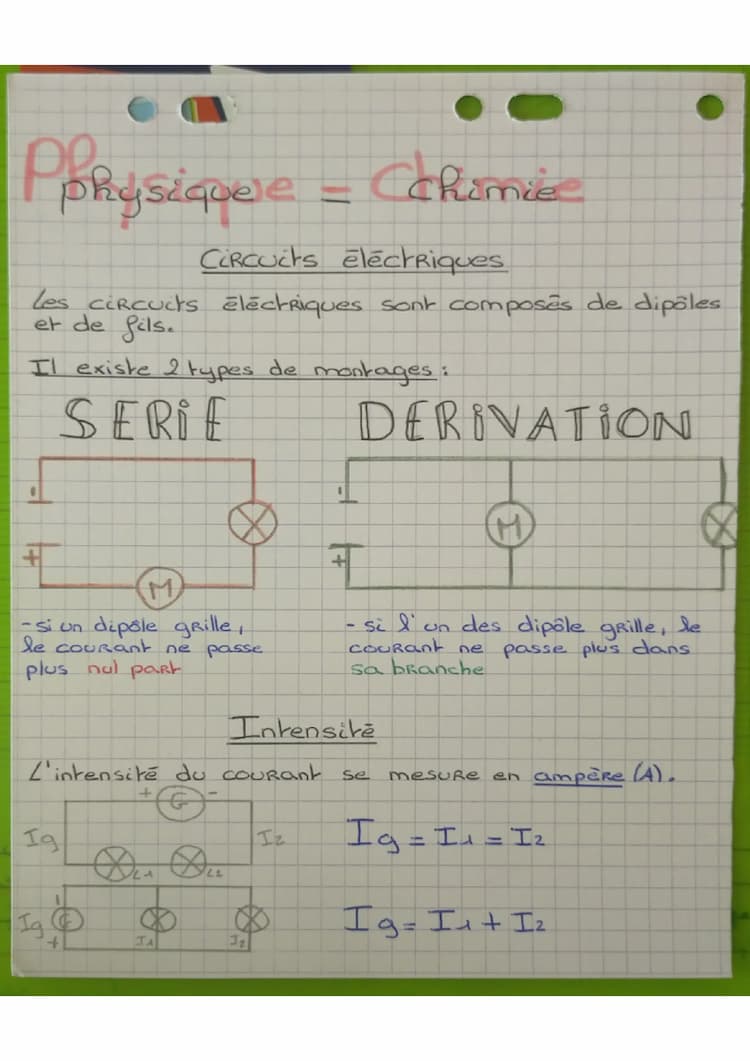 Physique = Chimie
Circuits électriques
Les circuits électriques sont composés de dipôles
et de fils.
Il existe 2 types de montages :
SERIE DERIVATION
- + M
- + M
-si un dipôle grille,
le courant ne passe
plus nul part
- si l'un des dipôle grille, le
courant ne passe plus dans
sa branche
Intensité
L'intensité du courant se mesure en ampère (A).
+ G -
Ig I2
L1 L2
Ig = I1 = I2
- G +
Ig I1 I2
Ig = I1 + I2